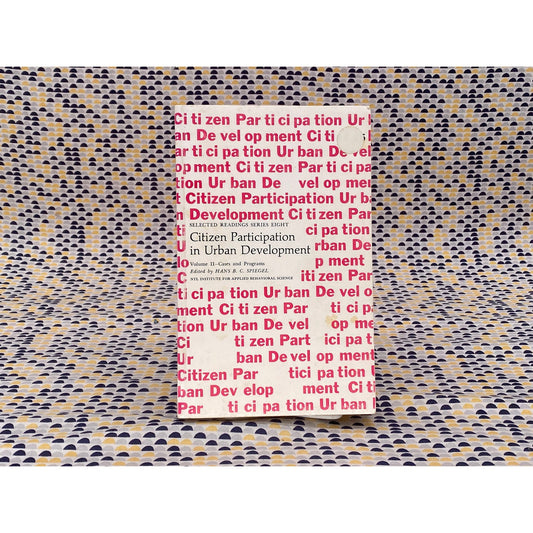 Ci ti zen Par ti ci pa tion Ur b
an De vel op ment Ci ti z
Par ti ci pa tion Ur ban De vel
op ment Ci ti zen Par ti ci pa
tion Ur ban De vel op ment
Citizen Participation Ur b
n Development Ci ti zen Par
SELECTED READINGS SERIES EIGHT
ti ci pa tion
Citizen Participation
U r ban De
in Urban Development
lo pment
Volume II—Cases and Programs
Ci ti zen
Edited by HANS B. C. SPIEGEL
NTL INSTITUTE FOR APPLIED BEHAVIORAL SCIENCE
C Par ti
ci pa tion Ur ban De vel op
ment Ci ti zen Par ti ci pa
tion Ur ban De vel op ment
Ci ti zen Part ici pa t
Ur ban De vel op men
Citizen Par tici pa tion
ban Dev elop ment Ci ti
Par ti ci pa tion Ur ban